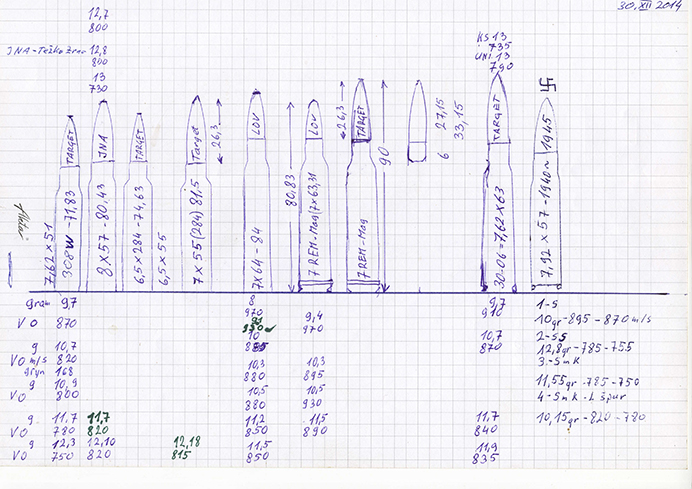 30. XII 2014
12,7
800
JNA-Teško zrno 12,8
800
13
730
KS 13
735
UNI 13
790
卐
7,62 x 51
308W - 71,83
TARGET
8 x 57 - 80,43
JNA
6,5 x 284 - 74,63
TARGET
6,5 x 55
7 x 55 (284) 81,5
Target
26,3
7x64 - 84
LOV
80,83
7 REM-Mag (7x63,31
LOV
26,3
7 REM-Mag
TARGET
90
6
27,15
33,15
30-06 = 7,62 x 63
TARGET
7,92 x 57 - 1940~1945
gram 9,7 8 9,7 1-S
970 910
VO 870 9,4 10gr-895-870 m/s
970
g 10,7 10 10,7 2-SS
VO m/s 820 870 12,8gr-785-755
gryn 168 10,3 10,3 3-SmK
g 10,9 880 895 11,55gr-785-750
VO 800 10,5 10,5 4-SmK-L špur
880 930
g 11,7 11,7 11,2 11,5 11,7 10,15gr-820-780
VO 780 820 850 890 840
g 12,3 12,10 12,18 11,5 11,9
VO 750 820 815 850 835